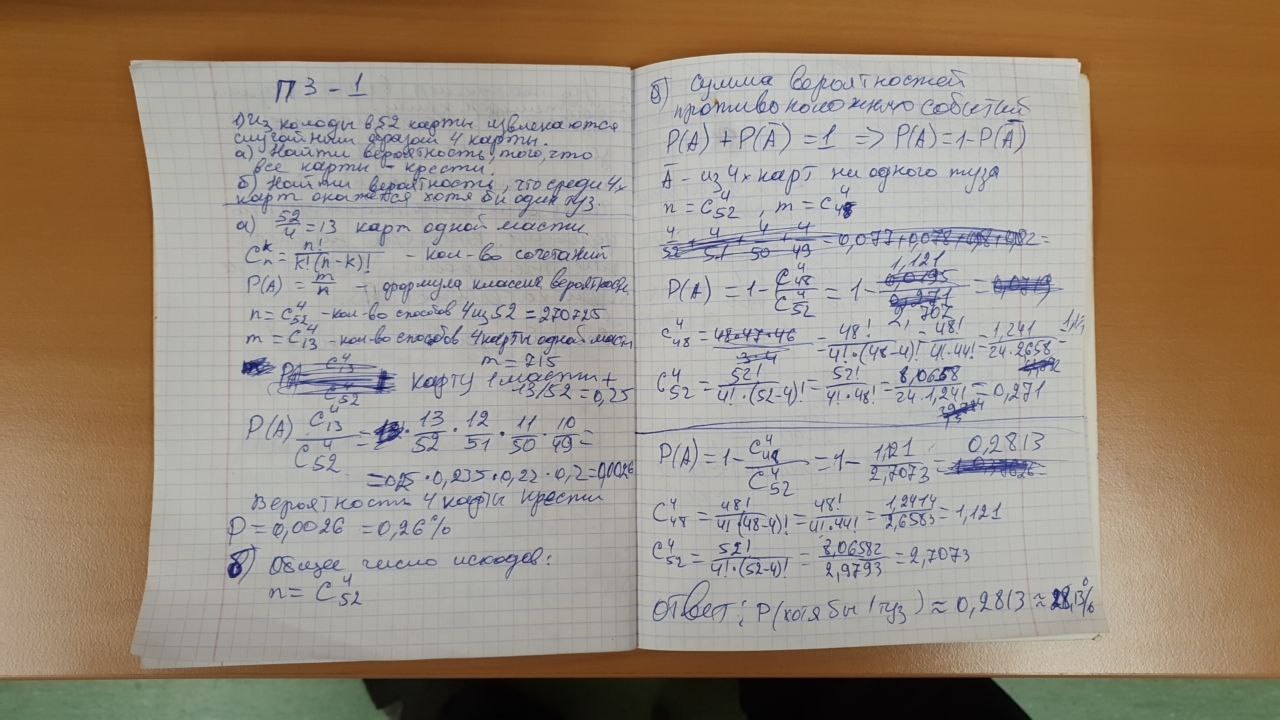 ПЗ - 1
1) Из колоды в 52 карты извлекаются
случайным образом 4 карты.
а) Найти вероятность, того, что
все карты - крести.
б) Найти вероятность, что среди 4х
карт окажется хотя бы один туз.
а) 52/4 = 13 карт одной масти
C_n^k = n!/(k!(n-k)!) - кол-во сочетаний
P(A) = m/n - формула классич вероятности
n = C_52^4 - кол-во способов 4 из 52 = 270725
m = C_13^4 - кол-во способов 4 карты одной масти
m = 715
карту 1 масти +
13/52 = 0,25
P(A) C_13^4/C_52^4 = · 13/52 · 12/51 · 11/50 · 10/49 =
= 0,25 · 0,235 · 0,22 · 0,2 = 0,0026
Вероятность 4 карты крести
P = 0,0026 = 0,26%
б) Общее число исходов:
n = C_52^4
б) Сумма вероятностей
противоположных событий
P(A) + P(Ā) = 1 => P(A) = 1 - P(Ā)
Ā - из 4х карт ни одного туза
n = C_52^4, m = C_48^4
4/52 + 4/51 + 4/50 + 4/49 = 0,077 + 0,078 + 0,08 + 0,082 =
P(A) = 1 - C_48^4/C_52^4 = 1 - 1,121/2,707 =
C_48^4 = 48·47·46/3·4 = 48!/(4!·(48-4)!) = 48!/(4!·44!) = 1,241/(24·2658) =
C_52^4 = 52!/(4!·(52-4)!) = 52!/(4!·48!) = 8,0658/(24·1,241) = 0,271
P(A) = 1 - C_48^4/C_52^4 = 1 - 1,121/2,7073 = 0,2813
C_48^4 = 48!/(4!(48-4)!) = 48!/(4!·44!) = 1,2414/2,6583 = 1,121
C_52^4 = 52!/(4!·(52-4)!) = 8,06582/2,9793 = 2,7073
Ответ: P(хотя бы 1 туз) ≈ 0,2813 ≈ 28,13%